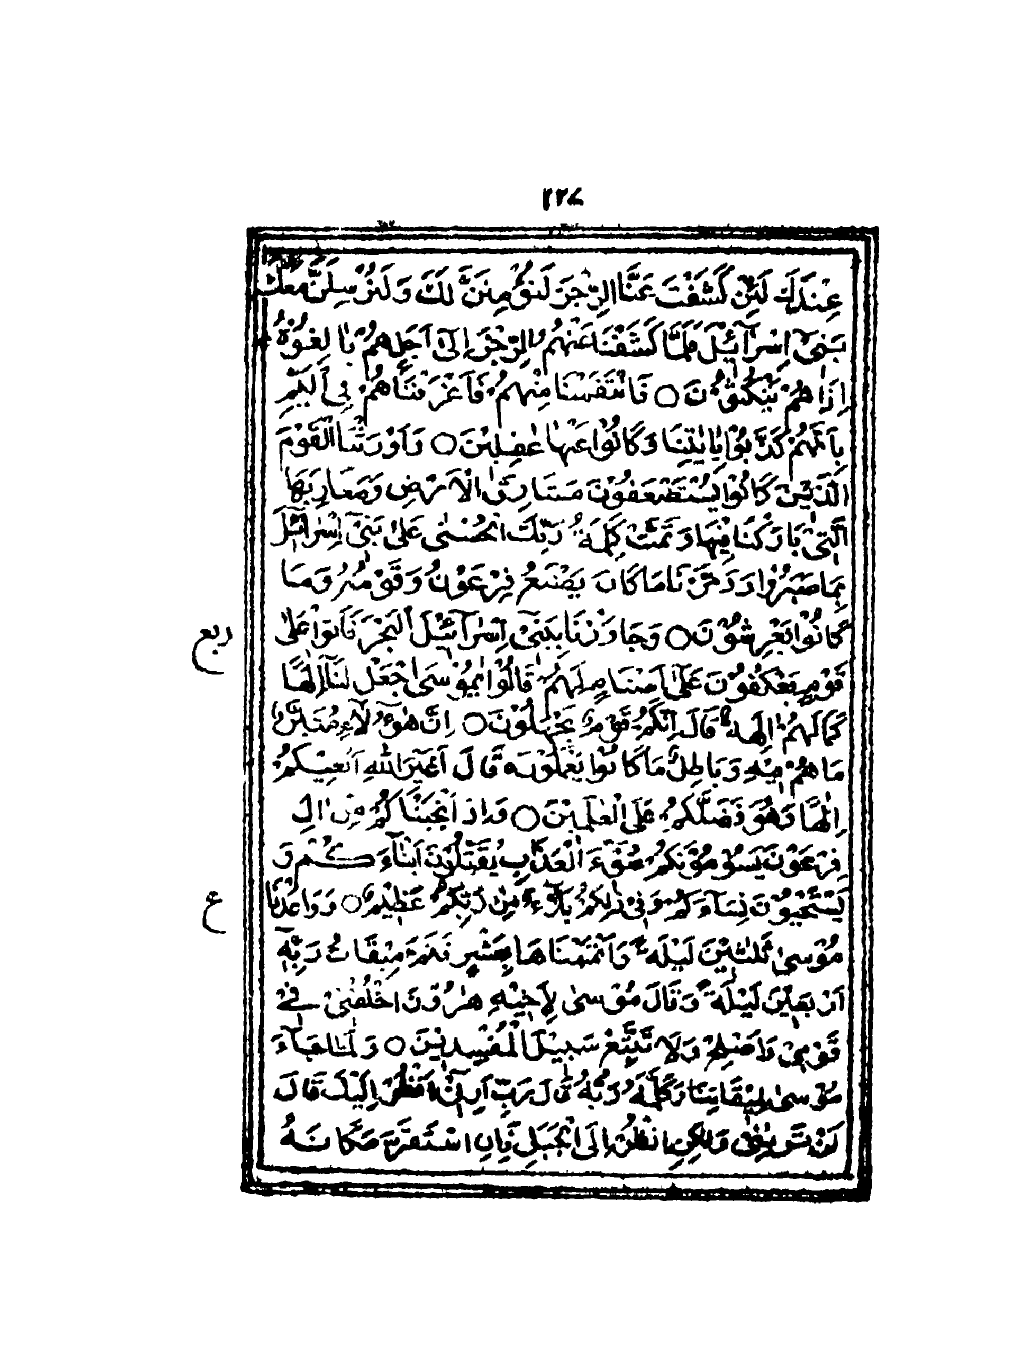 ٢٢٨
عِنْدَكَ لَئِنْ كَشَفْتَ عَنَّا الرِّجْزَ لَنُؤْمِنَنَّ لَكَ وَلَنُرْسِلَنَّ مَعَكَ
بَنِيْ اِسْرَآئِيْلَ فَلَمَّا كَشَفْنَا عَنْهُمُ الرِّجْزَ اِلٰى اَجَلٍ هُمْ بَالِغُوْهُ
اِذَا هُمْ يَنْكُثُوْنَ ○ فَانْتَقَمْنَا مِنْهُمْ فَاَغْرَقْنٰهُمْ فِي الْيَمِّ
بِاَنَّهُمْ كَذَّبُوْا بِاٰيٰتِنَا وَكَانُوْا عَنْهَا غٰفِلِيْنَ ○ وَاَوْرَثْنَا الْقَوْمَ
الَّذِيْنَ كَانُوْا يُسْتَضْعَفُوْنَ مَشَارِقَ الْاَرْضِ وَمَغَارِبَهَا
الَّتِيْ بَارَكْنَا فِيْهَا وَتَمَّتْ كَلِمَةُ رَبِّكَ الْحُسْنٰى عَلٰى بَنِيْ اِسْرَآئِيْلَ
بِمَا صَبَرُوْا وَدَمَّرْنَا مَا كَانَ يَصْنَعُ فِرْعَوْنُ وَقَوْمُهٗ وَمَا
كَانُوْا يَعْرِشُوْنَ ○ وَجَاوَزْنَا بِبَنِيْ اِسْرَآئِيْلَ الْبَحْرَ فَاَتَوْا عَلٰى
ربع
قَوْمٍ يَعْكُفُوْنَ عَلٰى اَصْنَامٍ لَهُمْ قَالُوْا يٰمُوْسَى اجْعَلْ لَنَا اِلٰهًا
كَمَا لَهُمْ اٰلِهَةٌ قَالَ اِنَّكُمْ قَوْمٌ تَجْهَلُوْنَ ○ اِنَّ هٰؤُلَاءِ مُتَبَّرٌ
مَا هُمْ فِيْهِ وَبَاطِلٌ مَا كَانُوْا يَعْمَلُوْنَ ○ قَالَ اَغَيْرَ اللّٰهِ اَبْغِيْكُمْ
اِلٰهًا وَهُوَ فَضَّلَكُمْ عَلَى الْعٰلَمِيْنَ ○ وَاِذْ اَنْجَيْنَاكُمْ مِنْ اٰلِ
فِرْعَوْنَ يَسُوْمُوْنَكُمْ سُوْٓءَ الْعَذَابِ يُقَتِّلُوْنَ اَبْنَآءَكُمْ وَ
يَسْتَحْيُوْنَ نِسَآءَكُمْ وَفِيْ ذٰلِكُمْ بَلَآءٌ مِنْ رَبِّكُمْ عَظِيْمٌ ○ وَوَاعَدْنَا
ع
مُوْسٰى ثَلٰثِيْنَ لَيْلَةً وَاَتْمَمْنَاهَا بِعَشْرٍ فَتَمَّ مِيْقَاتُ رَبِّهٖ
اَرْبَعِيْنَ لَيْلَةً وَقَالَ مُوْسٰى لِاَخِيْهِ هٰرُوْنَ اخْلُفْنِيْ فِيْ
قَوْمِيْ وَاَصْلِحْ وَلَا تَتَّبِعْ سَبِيْلَ الْمُفْسِدِيْنَ ○ وَلَمَّا جَآءَ
مُوْسٰى لِمِيْقَاتِنَا وَكَلَّمَهٗ رَبُّهٗ قَالَ رَبِّ اَرِنِيْ اَنْظُرْ اِلَيْكَ قَالَ
لَنْ تَرٰىنِيْ وَلٰكِنِ انْظُرْ اِلَى الْجَبَلِ فَاِنِ اسْتَقَرَّ مَكَانَهٗ